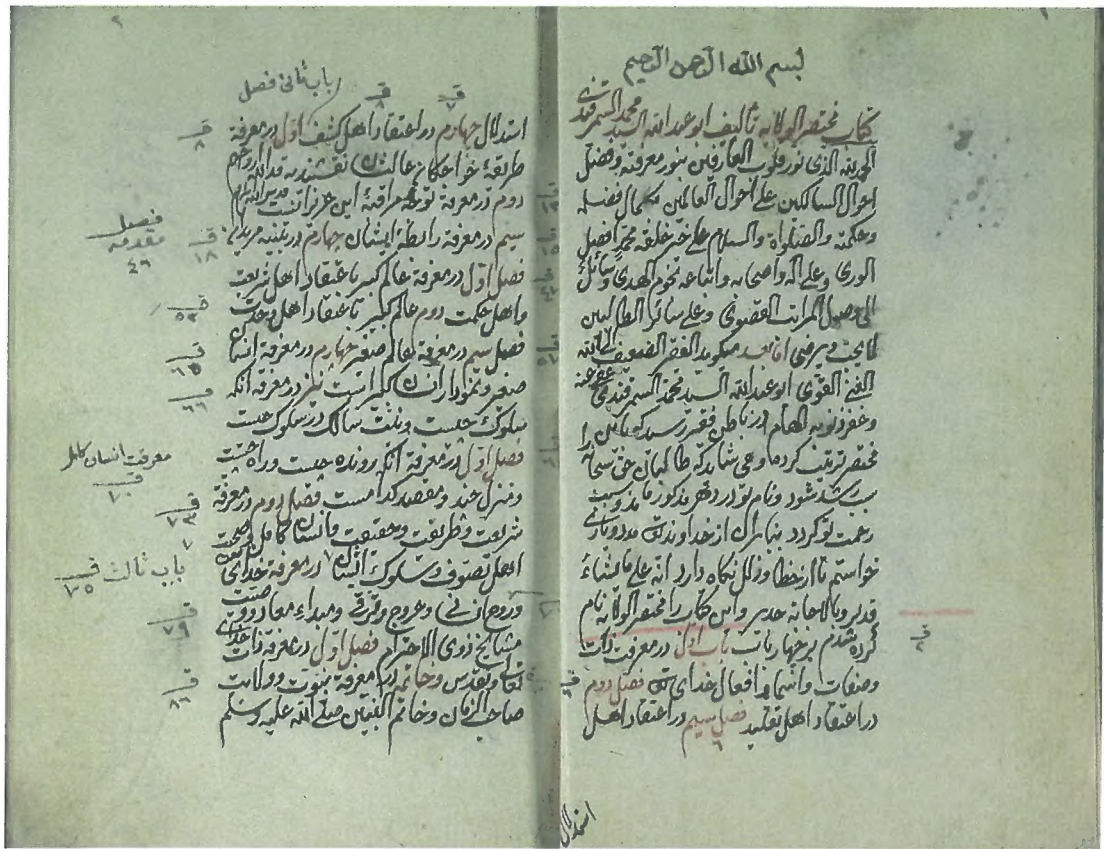 بسم الله الرحمن الرحيم
كتاب مختصر الولاية تأليف ابو عبد الله السيد محمد السمرقندي
الحمد لله الذي نور قلوب العارفين بنور معرفته وفضل
احوال السالكين على احوال العالمين بكمال فضله
وحكمته والصلواة والسلام على خير خلقه محمد افضل
الورى وعلى آله واصحابه واتباعه نجوم الهدى وسائل
الى حصول المراتب القصوى وعلى سائر الطالبين
لما يحب ويرضى اما بعد ميكويد الفقير الضعيف الى الله
الغني القوي ابو عبد الله السيد محمد السمرقندي عفي عنه
وغفر ذنوبه الهام در باطن فقير رسيد كه
مختصر ترتيب كرده و مى شايد كه طالبان حق سبحانه
سبب رشد شود و نام تو در دهر مذكور ماند و سبب
رحمت تو كردد بنابران از خداوند مدد و يارى
خواستم تا از خطا وزلل نكاه دارد انه على ما يشاء
قدير وبالاجابة جدير واين كتاب را مختصر الولاية نام
كرده شد بر چهار باب باب اول در معرفت ذات
وصفات واسما وافعال خداى فصل دوم
در اعتقاد اهل تقليد فصل سيم در اعتقاد اهل
٦
استدلال
باب ثانى فصل
ق ٧
ق ٨
استدلال چهارم در اعتقاد اهل كشف اول در معرفة
طريقۀ خواجكان نقشبنديه
دوم در معرفة توجه مراقبۀ اين عزيزانست
سيم در معرفة رابطۀ ايشان چهارم در تنبيه مريدان
فصل اول در معرفة عالم كبير باعتقاد اهل شريعت
واهل حكمت دوم عالم كبير باعتقاد اهل وحدت
فصل سيم در معرفة عالم صغير چهارم در معرفة انسان
صغير ونمودار انسان كبير است در معرفة آنكه
سلوك چيست ونيت سالك در سلوك چيست
فصل اول در معرفة آنكه رونده چيست وراه چيست
ومنزل چند ومقصد كدامست فصل دوم در معرفة
شريعت وطريقت وحقيقت وانسان كامل
اهل تصوف وسلوك ايشان در معرفة خداى
وروح انسانى وعروج وترقى ومبداء معاد
مشايخ ذوى الاحترام فصل اول در معرفة ذات
وتقدس وخاتمه در معرفة نبوت وولايت
صاحب الزمان وخاتم النبيين صلى الله عليه وسلم
ق ٨
فصل مقدمه ٤٦
ق ١٨
ق ٥٣
ق ٦٥
ق ٦٦
معرفت انسان كامل
ق ٧٣
باب ثالث
ق ٧٩
ق ٨٦